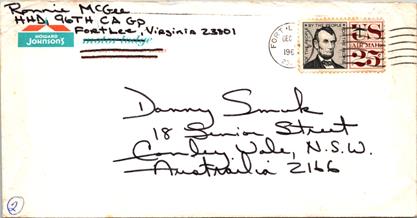 Ronnie McGee
HHD, 96TH CA GP
Fort Lee, Virginia 23801
HOWARD
JOHNSON'S
motor lodge
FORT L
DEC
196
OF THE PEOPLE
BY THE PEOPLE
US
AIR MAIL
25¢
Danny Smuk
18 Senior Street
Canley Vale, N.S.W.
Australia 2166
2